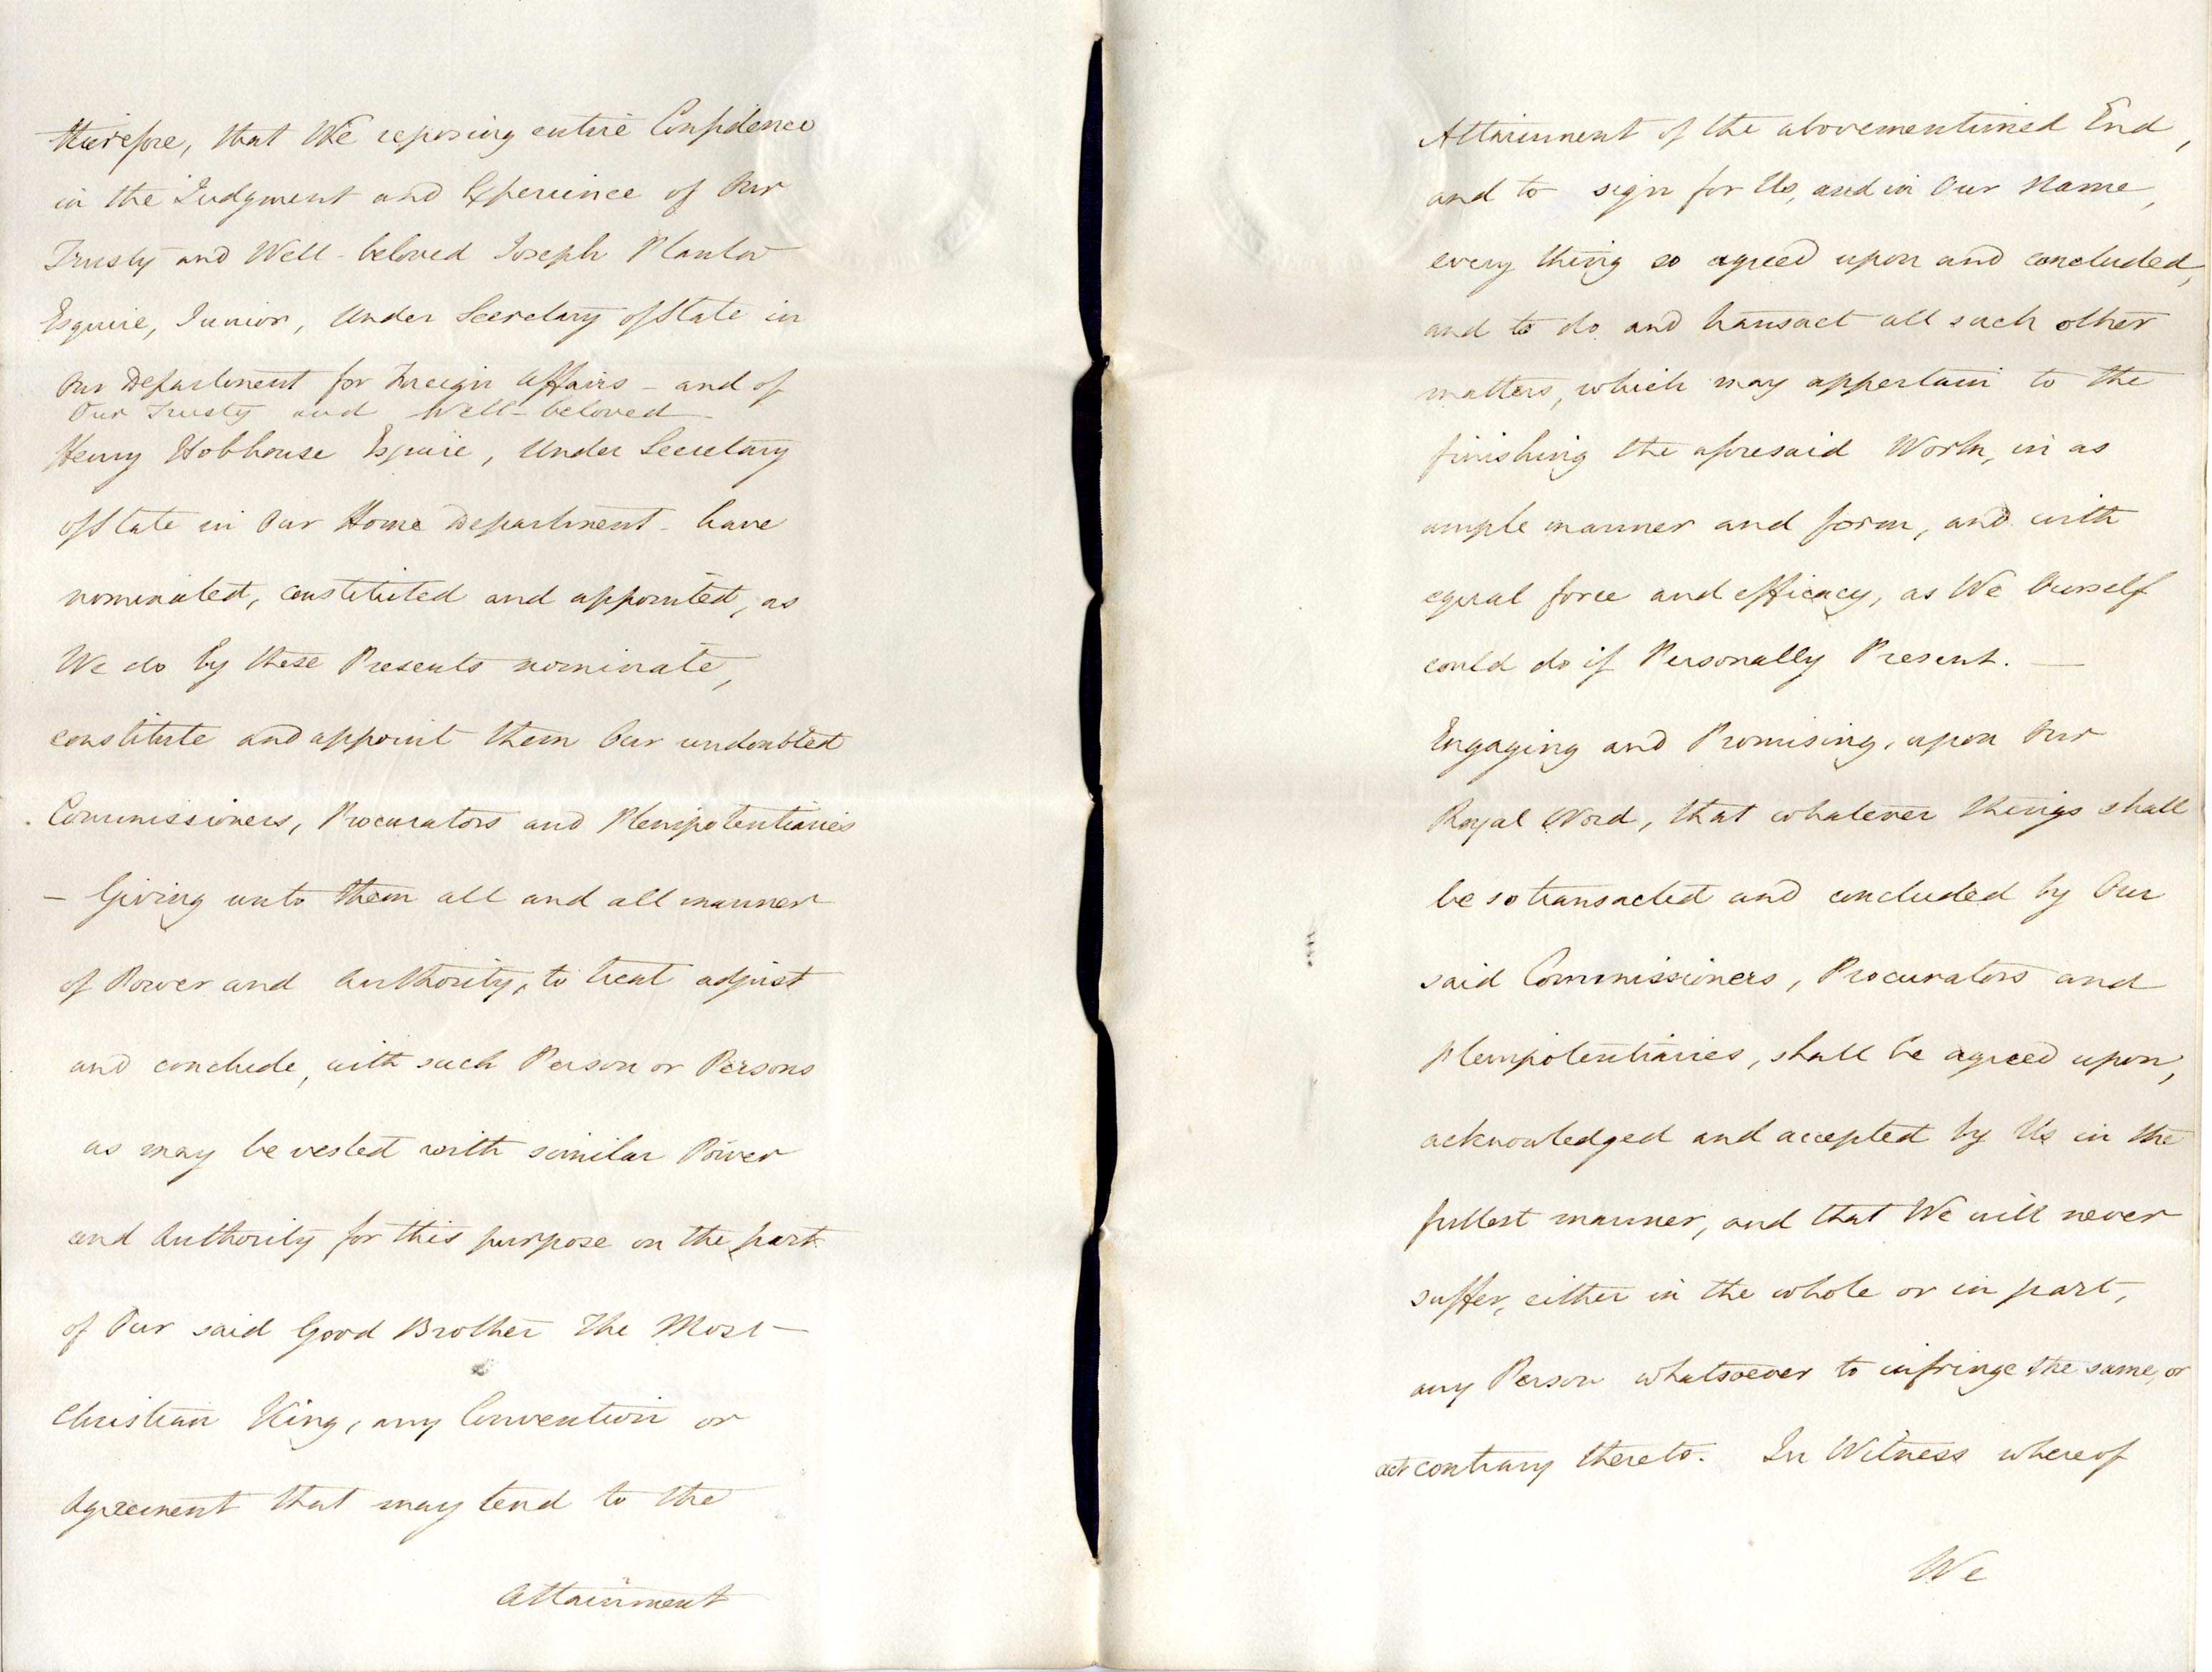 therefore, that We reposing entire Confidence
in the Judgment and Experience of Our
Trusty and Well-beloved Joseph Planta
Esquire, Junior, Under Secretary of State in
Our Department for Foreign Affairs – and of
Our Trusty and Well-beloved
Henry Hobhouse Esquire, Under Secretary
of State in Our Home Department – have
nominated, constituted and appointed, as
We do by these Presents nominate,
constitute and appoint them Our undoubted
Commissioners, Procurators and Plenipotentiaries
– Giving unto them all and all manner
of Power and Authority, to treat adjust
and conclude, with such Person or Persons
as may be vested with similar Power
and Authority for this purpose on the part
of Our said Good Brother The Most
Christian King, any Convention or
Agreement that may tend to the
Attainment
Attainment of the abovementioned End,
and to sign for Us, and in Our Name,
every thing so agreed upon and concluded,
and to do and transact all such other
matters, which may appertain to the
finishing the aforesaid Work, in as
ample manner and form, and with
equal force and efficacy, as We Ourself
could do if Personally Present. —
Engaging and Promising, upon Our
Royal Word, that whatever things shall
be so transacted and concluded by Our
said Commissioners, Procurators and
Plenipotentiaries, shall be agreed upon,
acknowledged and accepted by Us in the
fullest manner, and that We will never
suffer, either in the whole or in part,
any Person whatsoever to infringe the same, or
act contrary thereto. In Witness whereof
We